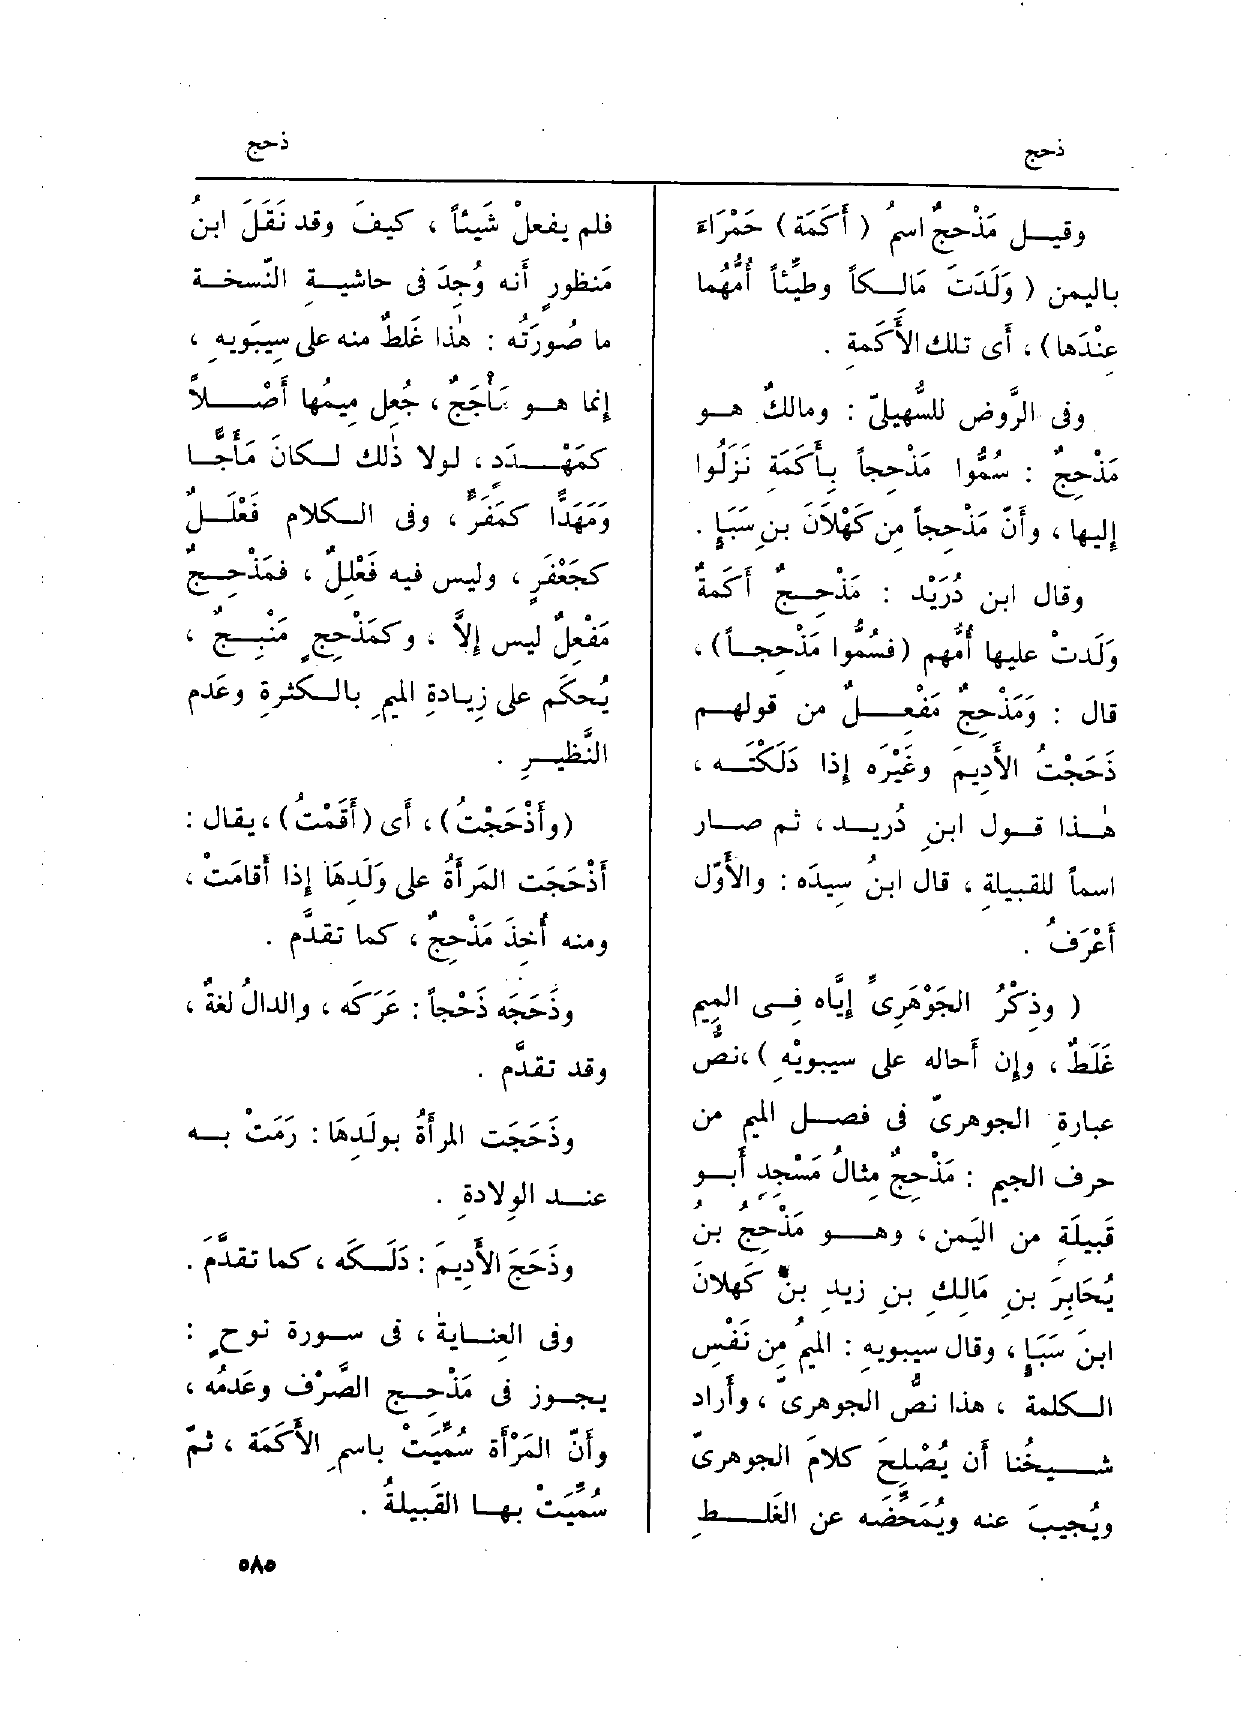 ذحج
ذحج
وقيـل مَذْحِجٌ اسمُ ( أَكَمَة ) حَمْرَاءَ
باليمن ( وَلَدَتْ مَالِـكاً وطَيِّئاً أُمُّهُما
عِنْدَها ) ، أى تلك الأَكَمةِ .
وفى الرَّوض للسُّهيلىّ : ومالكٌ هـو
مَذْحِجٌ : سُمُّوا مَذْحِجاً بِأَكَمَةٍ نَزَلُوا
إليها ، وأنّ مَذْحِجاً مِن كَهْلاَنَ بنِ سَبَإٍ .
وقال ابن دُرَيْد : مَذْحِـجٌ أَكَمَةٌ
وَلَدتْ عليها أُمُّهم ( فسُمُّوا مَذْحِجـاً ) ،
قال : وَمَذْحِجٌ مَفْعِــلٌ من قولهـم
ذَحَجْتُ الأَديمَ وغَيْرَه إذا دَلَكْتَـه ،
هٰـذا قـول ابنِ دُريـد ، ثم صـار
اسماً للقبيلةِ ، قال ابنُ سِيدَه : والأَوّل
أَعْرَفُ .
( وذِكْرُ الجَوْهَرِىِّ إيَّاه فِـى المِيمِ
غَلَطٌ ، وإن أَحاله على سيبويْهِ ) ، نصُّ
عبارةِ الجوهرىّ فى فصـل الميم من
حرف الجيم : مَذْحِجٌ مثالُ مَسْجِدٍ أَبـو
قَبِيلَةٍ من اليَمن ، وهـو مَذْحِجُ بنُ
يُحَابِرَ بنِ مَالِكِ بنِ زيدِ بنْ كَهلانَ
ابنَ سَبَإٍ ، وقال سيبويهِ : الميمُ مِن نَفْسِ
الـكلمة ، هذا نصُّ الجوهرىّ ، وأَراد
شـيخُنا أن يُصْلِحَ كلامَ الجوهرىّ
ويُجيبَ عنه ويُمَحِّضَه عن الغَلـطِ
فلم يفعلْ شَيئاً ، كيفَ وقد نَقَلَ ابنُ
مَنظورٍ أَنه وُجِدَ فى حاشيـةِ النُّسخـة
ما صُورَتُه : هٰذا غَلطٌ منه على سِيبَويه ،
إنما هـو مَأْجَجٌ ، جُعل مِيمُها أَصْـلاً
كمَهْـدَدٍ ، لولا ذٰلك لـكانَ مَأَجًّـا
وَمَهَدًّا كمَفَرٍّ ، وفى الـكلام فَعْلَـلٌ
كجَعْفَرٍ ، وليس فيه فَعْلِلٌ ، فمَذْحِـجٌ
مَفْعِلٌ ليس إلاَّ ، وكمَذْحِجٍ مَنْبِـجٌ ،
يُحكَم على زِيادةِ الميمِ بالـكثرةِ وعَدم
النَّظيـرِ .
( وأَذْحَجْتُ ) ، أى ( أَقَمْتُ ) ، يقال :
أَذْحَجَت المَرأَةُ على وَلَدِهَا إذا أَقامَتْ ،
ومنه أُخِذَ مَذْحِجٌ ، كما تقدَّم .
وذَحَجَه ذَحْجاً : عَرَكَه ، والدالُ لغةٌ ،
وقد تقدَّم .
وذَحَجَت المرأَةُ بولَدِهَا : رَمَتْ بـه
عنـد الوِلادة .
وذَحَجَ الأَديمَ : دَلَـكَه ، كما تقدَّمَ .
وفى العِنـايةِ ، فى سـورة نوحٍ :
يجـوز فى مَذْحِـج الصَّرْفُ وعَدَمُه ،
وأَنّ المَرْأَة سُمِّيَتْ باسمِ الأَكَمَة ، ثمّ
سُمِّيَتْ بهـا القَبِيلةُ .
٥٨٥